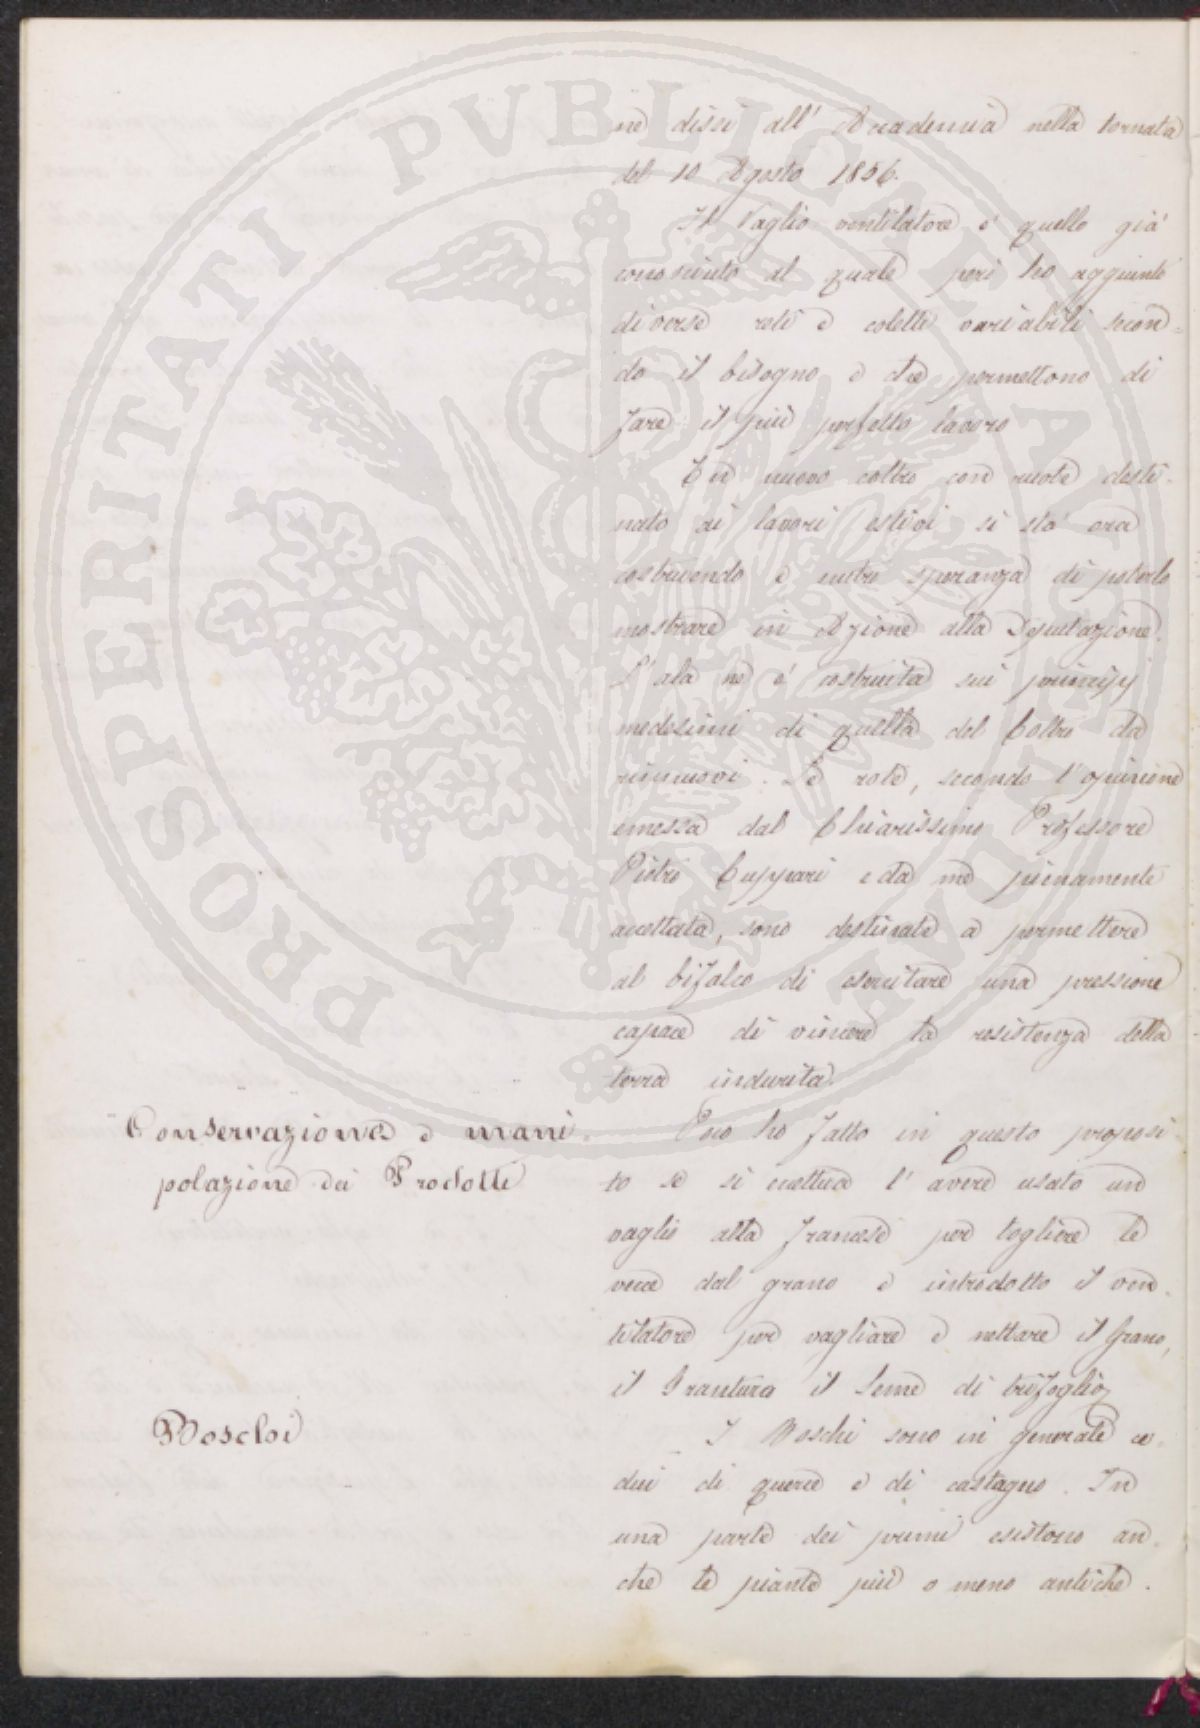 ne dissi all' Accademia nella tornata
del 10 Agosto 1856.
Il Vaglio ventilatore è quello già
conosciuto al quale però ho aggiunte
diverse reti e colette variabili secon-
do il bisogno e che permettono di
fare il più perfetto lavoro
Un nuovo coltro con ruote desti-
nato ai lavori estivi si stà ora
costruendo e nutro speranza di poterlo
mostrare in Azione alla Deputazione.
L'ala ne è costruita sui principj
medesimi di quella del Coltro da
rinnuovi. Le rote, secondo l'opinione
emessa dal Chiarissimo Professore
Pietro Cuppari e da me pienamente
accettata, sono destinate a permettere
al bifalco di esercitare una pressione
capace di vincere la resistenza della
terra indurita.
Conservazione e mani-
polazione dei Prodotti
Poco ho fatto in questo proposi-
to se si eccettua l'avere usato un
vaglio alla francese per togliere le
vecce dal grano e introdotto il ven-
tilatore per vagliare e nettare il Grano,
il Granturco il Seme di trifoglio
Boschi
I Boschi sono in generale ce-
dui di querce e di castagno. In
una parte dei primi esistono an-
che le piante più o meno antiche.
PROSPERITATI PVBLICAE AVGENDAE